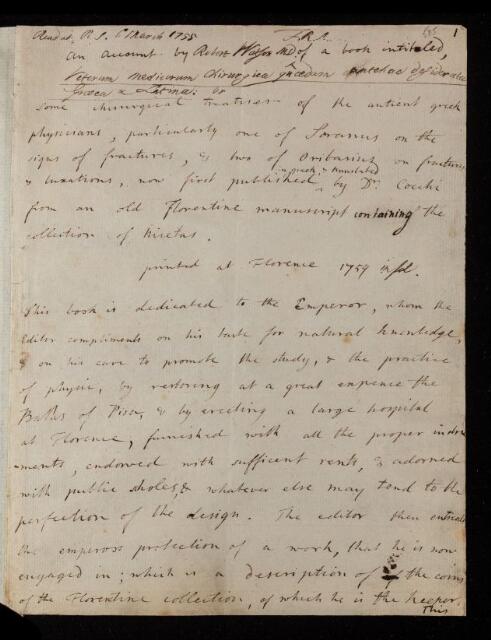 Read at R. S. 6 March 1755
F.R.S.
1
an account by Robert Watson M.D. of a book intitled,
Veterum medicorum chirurgica quædam
Græca & Latina: or
Some chirurgical treatises of the antient greek
physicians, particularly one of Soranus on the
signs of fractures, & two of Oribasius on fractures
& luxations, now first published in greek, & translated by Dr. Cocchi
from an old Florentine manuscript containing the
collection of Nicetas.
printed at Florence 1754 in fol.
This book is dedicated to the Emperor, whom the
Editor compliments on his taste for natural knowledge,
& on his care to promote the study, & the practice
of physic, by restoring at a great expence the
Baths of Pisa, & by erecting a large hospital
at Florence, furnished with all the proper instru
-ments, endowed with sufficent rents, & adorned
with public scholes, & whatever else may tend to the
perfection of the design. The editor then entreats
the emperors protection of a work, that he is now
engaged in; which is a description of the coins
of the Florentine collection, of which he is the keeper.
This